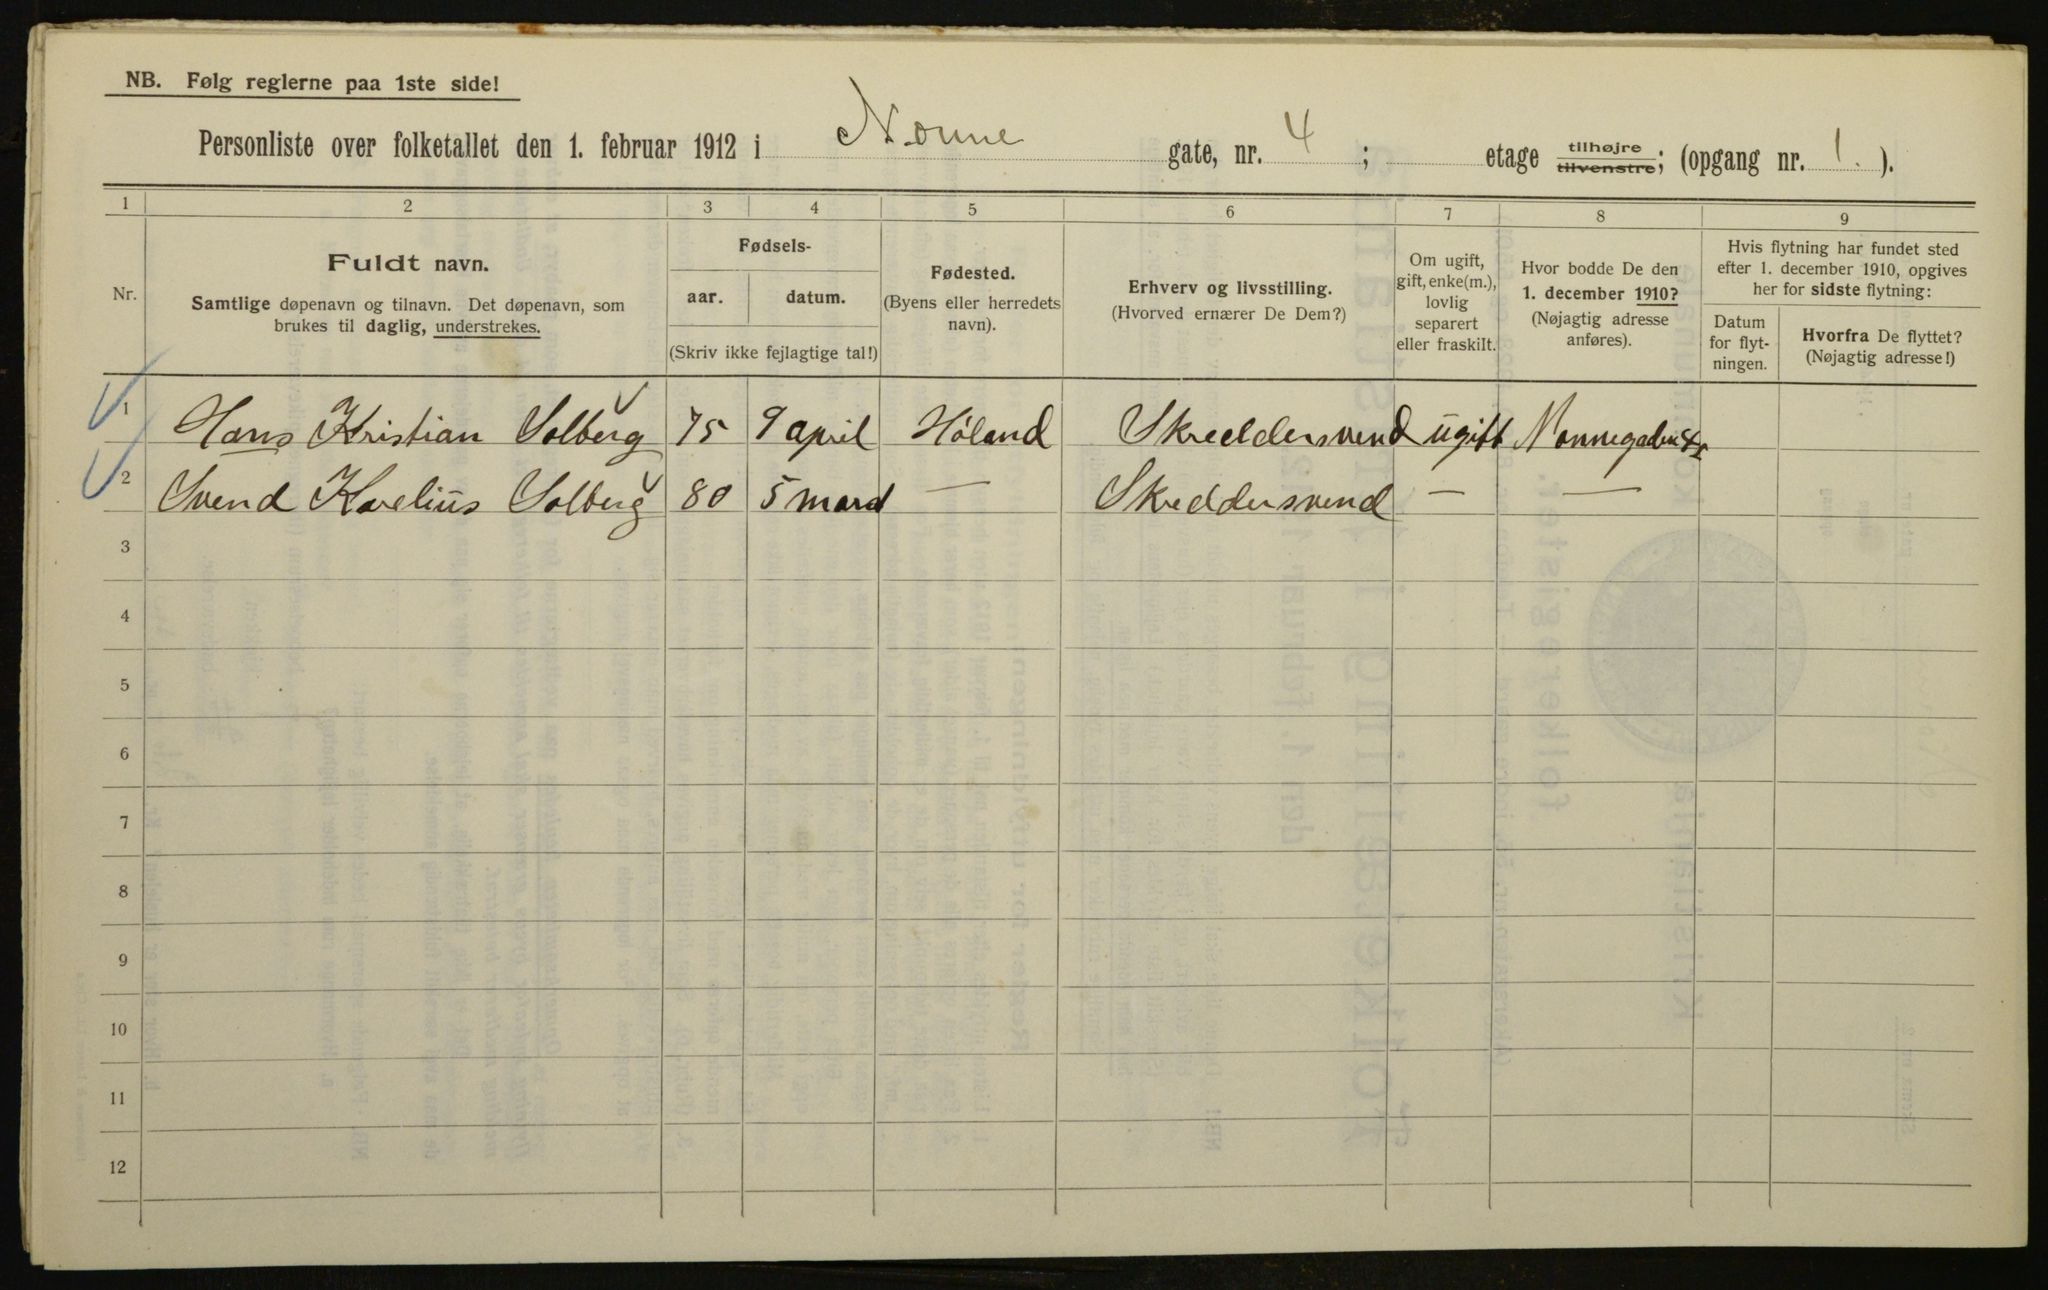 NB. Følg reglerne paa 1ste side!
Personliste over folketallet den 1. februar 1912 i Nonne gate, nr. 4; etage tilhøjre tilvenstre; (opgang nr. 1.).
1 2 3 4 5 6 7 8 9
Nr.
Fuldt navn.
Samtlige døpenavn og tilnavn. Det døpenavn, som
brukes til daglig, understrekes.
Fødsels-
aar. datum.
(Skriv ikke fejlagtige tal!)
Fødested.
(Byens eller herredets
navn).
Erhverv og livsstilling.
(Hvorved ernærer De Dem?)
Om ugift,
gift, enke(m.),
lovlig
separert
eller fraskilt.
Hvor bodde De den
1. december 1910?
(Nøjagtig adresse
anføres).
Hvis flytning har fundet sted
efter 1. december 1910, opgives
her for sidste flytning:
Datum
for flyt-
ningen.
Hvorfra De flyttet?
(Nøjagtig adresse!)
1 Hans Kristian Solberg 75 9 april Höland Skreddersvend ugift Nonnegaden 4
2 Svend Karelius Solberg 80 5 mars — Skreddersvend — —
3
4
5
6
7
8
9
10
11
12